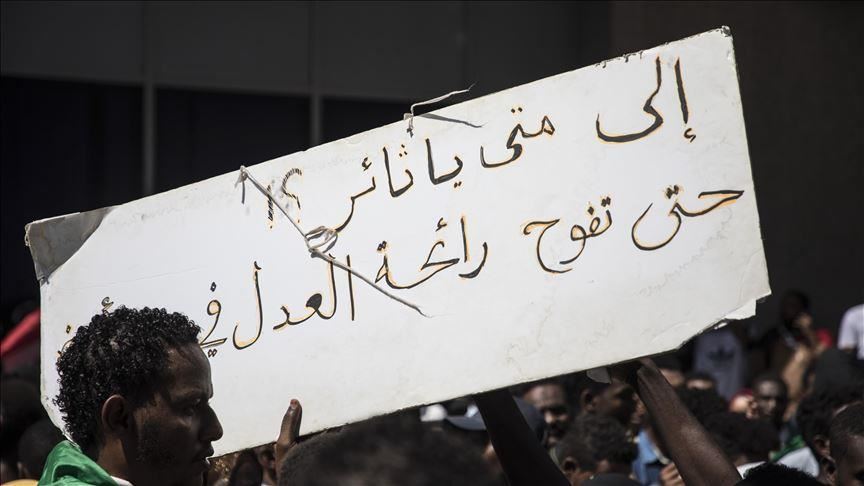 إلى متى يا ثائر ؟!
حتى تفوح رائحة العدل في